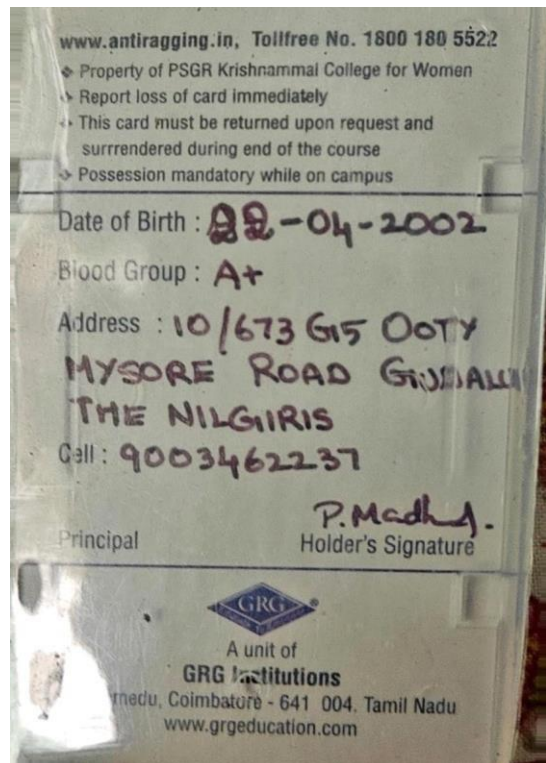 www.antiragging.in, Tollfree No. 1800 180 5522
Property of PSGR Krishnammal College for Women
Report loss of card immediately
This card must be returned upon request and
surrrendered during end of the course
Possession mandatory while on campus
Date of Birth : 22-04-2002
Blood Group : A+
Address : 10/673 G15 OOTY
MYSORE ROAD
THE NILGIRIS
Cell : 9003462237
P.Madhu
Principal Holder's Signature
GRG
A unit of
GRG Institutions
Coimbatore - 641 004. Tamil Nadu
www.grgeducation.com